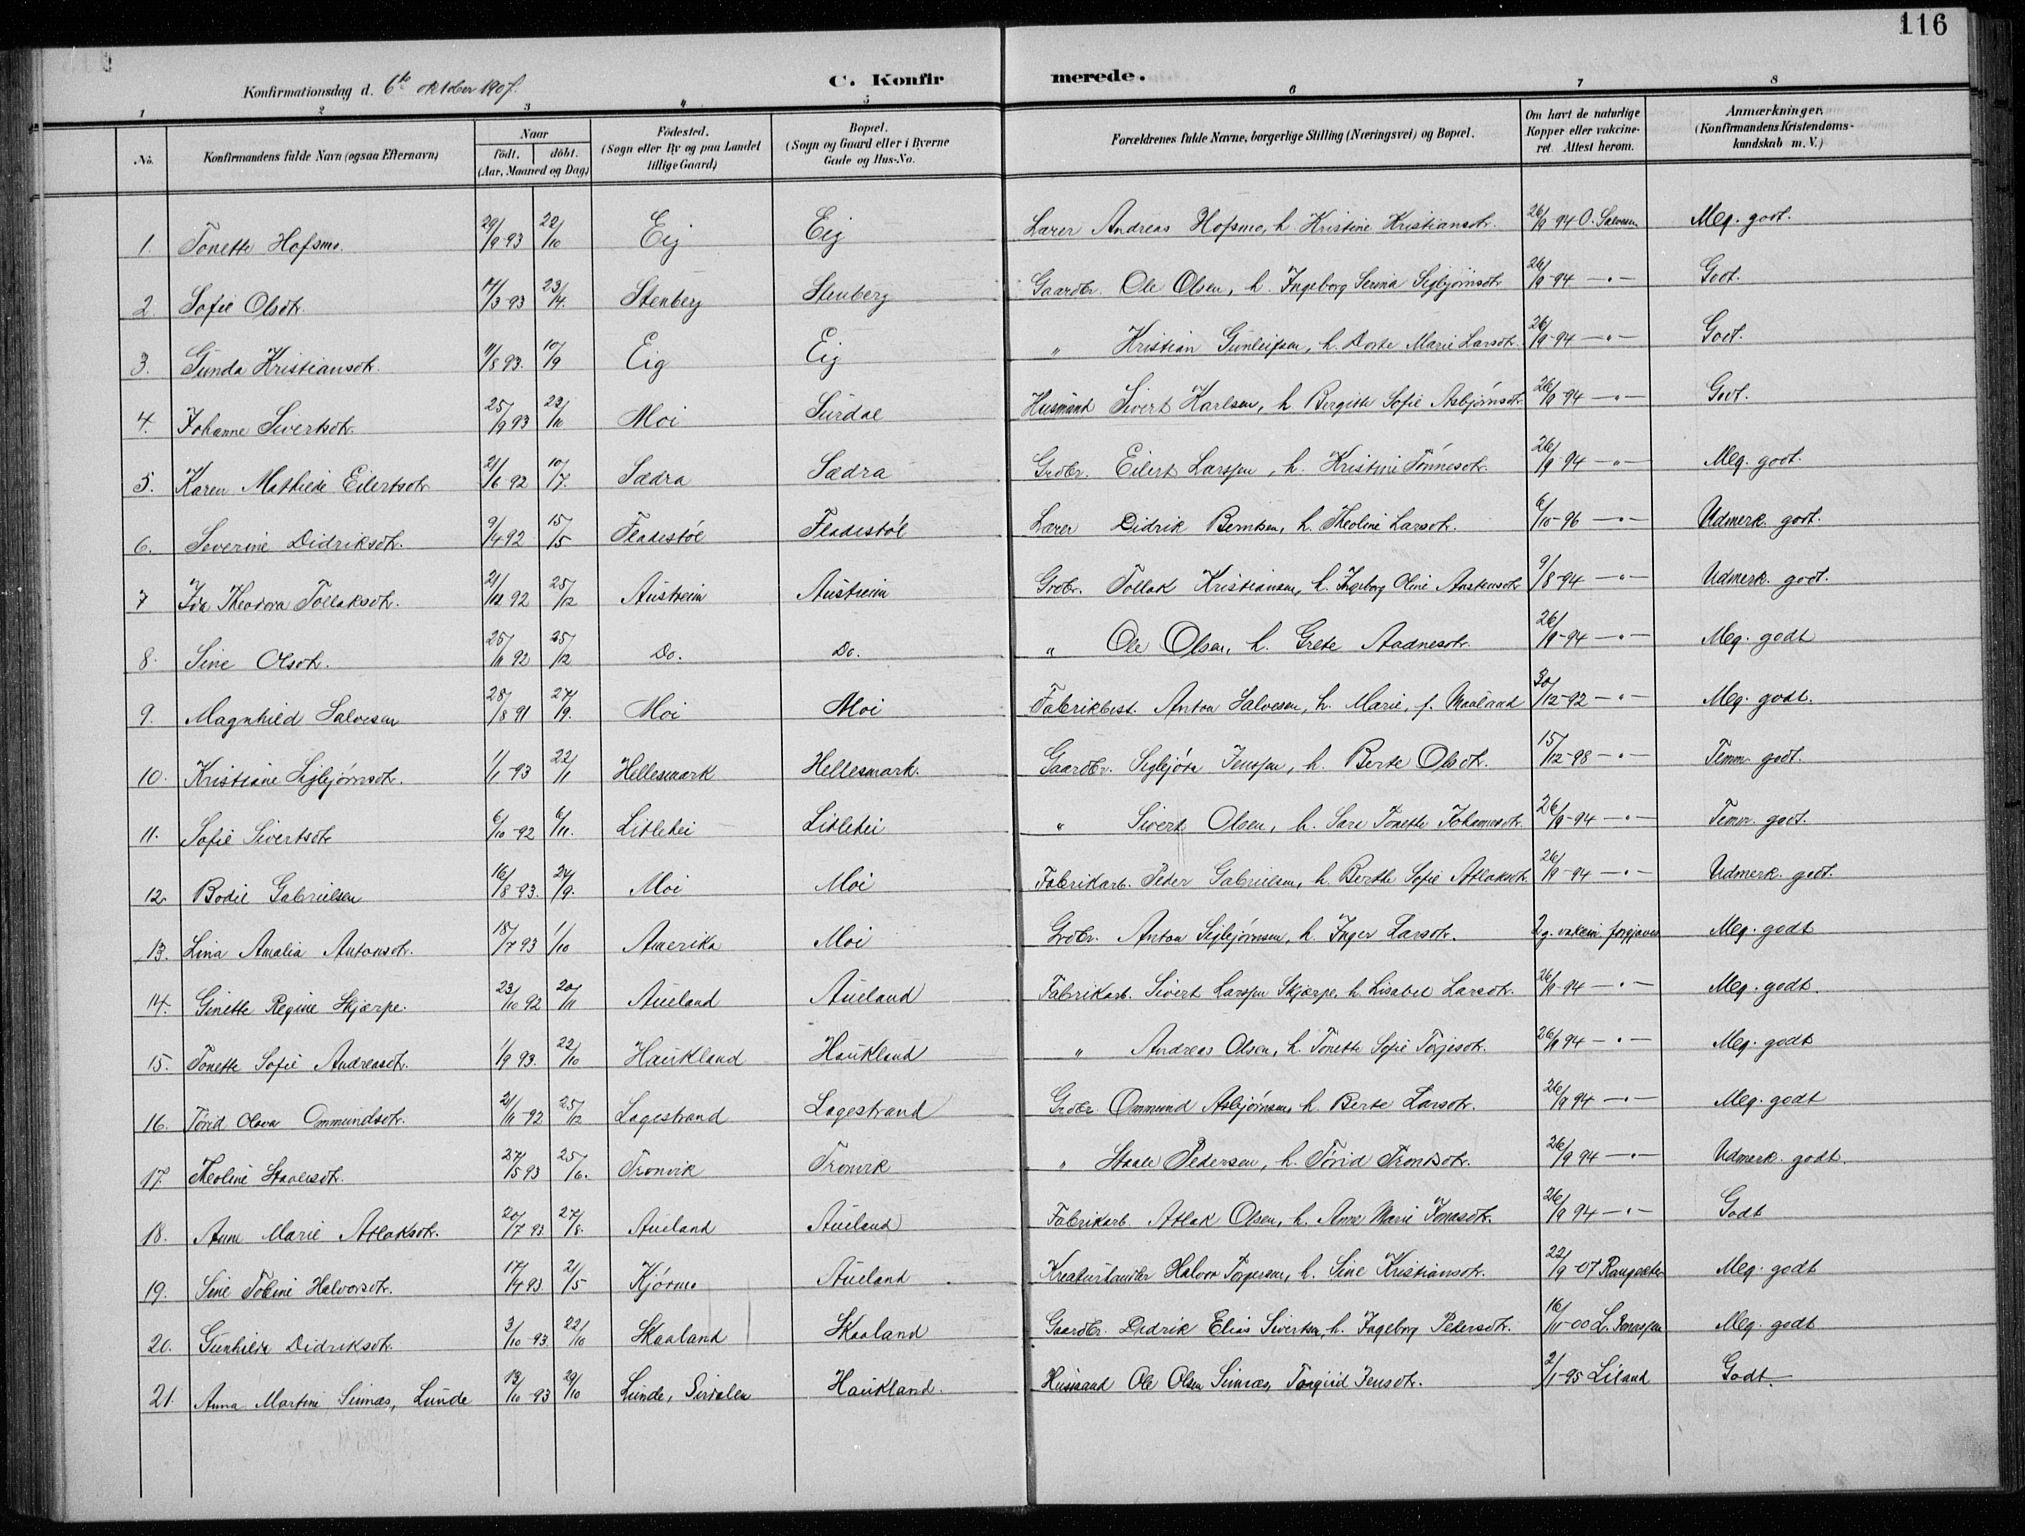 116
Konfirmationsdag d. 6te oktober 1907. C. Konfirmerede.
1 2 3 4 5 6 7 8
No. Konfirmandens fulde Navn (ogsaa Efternavn) Naar født. døbt. (Aar, Maaned og Dag) Fødested. (Sogn eller By og paa Landet tillige Gaard) Bopæl. (Sogn og Gaard eller i Byerne Gade og Hus-No. Forældrenes fulde Navne, borgerlige Stilling (Næringsvei) og Bopæl. Om havt de naturlige Kopper eller vakcineret. Attest herom. Anmærkninger. (Konfirmandens Kristendomskundskab m. V.)
1. Tonette Hofsmo. 29/9 93 22/10 Eig Eig Lærer Andreas Hofsmo, h. Kristine Kristiansdtr. 26/9 94 O. Salvesen Meg. godt.
2. Sofie Olsdtr. 14/3-93 23/4. Stenberg Stenberg Gaardbr. Ole Olsen, h. Ingeborg Serina Sigbjørnsdtr 26/9-94 —"— Godt.
3. Gunda Kristiansdtr. 11/8 93. 10/9 Eig Eig " Kristian Gunleifsen, h. Dorte Marie Larsdtr. 26/9-94 —"— Godt.
4. Johanne Sivertsdtr. 25/9 93 23/10 Moi Surdal Husmand Sivert Karlsen, h. Bergitte Sofie Asbjørnsdtr 26/9-94 —"— Godt.
5. Karen Mathilde Eilertsdtr 21/6 92 10/7. Sædra Sædra Grdbr. Eilert Larssen, h. Kristine Tønnesdtr. 26/9-94 —"— Meg. godt.
6. Severine Didriksdtr. 9/4 92 15/5 Fladestøl Fladestøl Lærer Didrik Berntsen, h. Theoline Larsdtr. 6/10-96 —"— Udmerk. godt.
7 Ida Theodora Tollaksdtr. 21/11 92 25/12 Austreim Austreim Grdbr. Tollak Kristiansen, h. Ingeborg Oline Aastensdtr 9/8-94 —"— Udmerk. godt.
8. Sine Olsdtr. 25/11 92 25/12 Do. Do. " Ole Olsen, h. Grete Aadnesdtr. 26/9-94 —"— Meg. godt
9. Magnhild Salvesen 28/8 91 27/9. Moi Moi Fabrikbest. Anton Salvesen, h. Marie, f. Maaland 30/12-92 —"— Meg. godt.
10. Kristiane Sigbjørnsdtr. 1/1-93 22/1 Hellesmark Hellesmark. Gaardbr. Sigbjørn Jenssen, h. Berte Olsdtr. 15/12-98 —"— Temm. godt.
11. Sofie Sivertsdtr 6/10-92 6/11. Litlehei Litlehei " Sivert Olsen, h. Sare Tonette Johannesdtr. 26/9-94 —"— Temm. godt.
12. Bodil Gabrielsen 16/8-93. 24/9. Moi Moi Fabrikarb. Peder Gabrielsen, h. Berthe Sofie Atlaksdtr. 26/9-94 —"— Udmerk. godt.
13. Lina Amalia Antonsdtr. 15/7 93 1/10 Amerika Moi Grdbr. Anton Sigbjørnsen, h. Inger Larsdtr. 2 g. vakcin. forgjæves Meg. godt
14. Ginette Regine Skjærpe. 23/10 92 20/11 Aueland Aueland Fabrikarb. Sivert Larssen Skjærpe, h. Lisabet Larsdtr. 26/9-94 —"— Meg. godt.
15. Tonette Sofie Andreasdtr. 1/9 93. 22/10 Haukland Haukland " Andreas Olsen, h. Tonette Sofie Torjesdtr. 26/9 94 —"— Meg. godt
16. Tørid Olava Ommundsdtr. 21/11-92 25/12 Lagestrand Lagestrand Grdbr. Ommund Asbjørnsen, h. Berte Larsdtr. 26/9 94 —"— Meg. godt
17. Theoline Staalesdtr. 27/5 93 25/6. Tronvik Tronvik " Staale Pedersen, h. Tørid Trondsdtr. 26/9 94 —"— Udmerk. godt.
18. Anne Marie Atlaksdtr. 20/7 93. 27/8. Aueland Aueland Fabrikarb. Atlak Olsen, h. Anne Marie Jonasdtr. 26/9 94 —"— Godt
19. Sine Toline Halvorsdtr. 17/4 93. 21/5 Kjørmo Aueland Kreaturhandler Halvor Torgersen, h. Sine Kristiansdtr. 22/9-07 Meg. godt
20. Gunhilda Didriksdtr. 3/10-93. 22/10 Skaaland Skaaland Gaardbr. Didrik Elias Sivertsen, h. Ingeborg Pedersdtr. 16/11-00 L. Jonassen Meg. godt
21. Anna Martine Sinnæs, Lunde 13/10-93 29/10 Lunde, Sirdalen Haukland. Husmand Ole Olsen Sinnæs, Torgird Jensdtr. 2/1-95 Liland Godt.